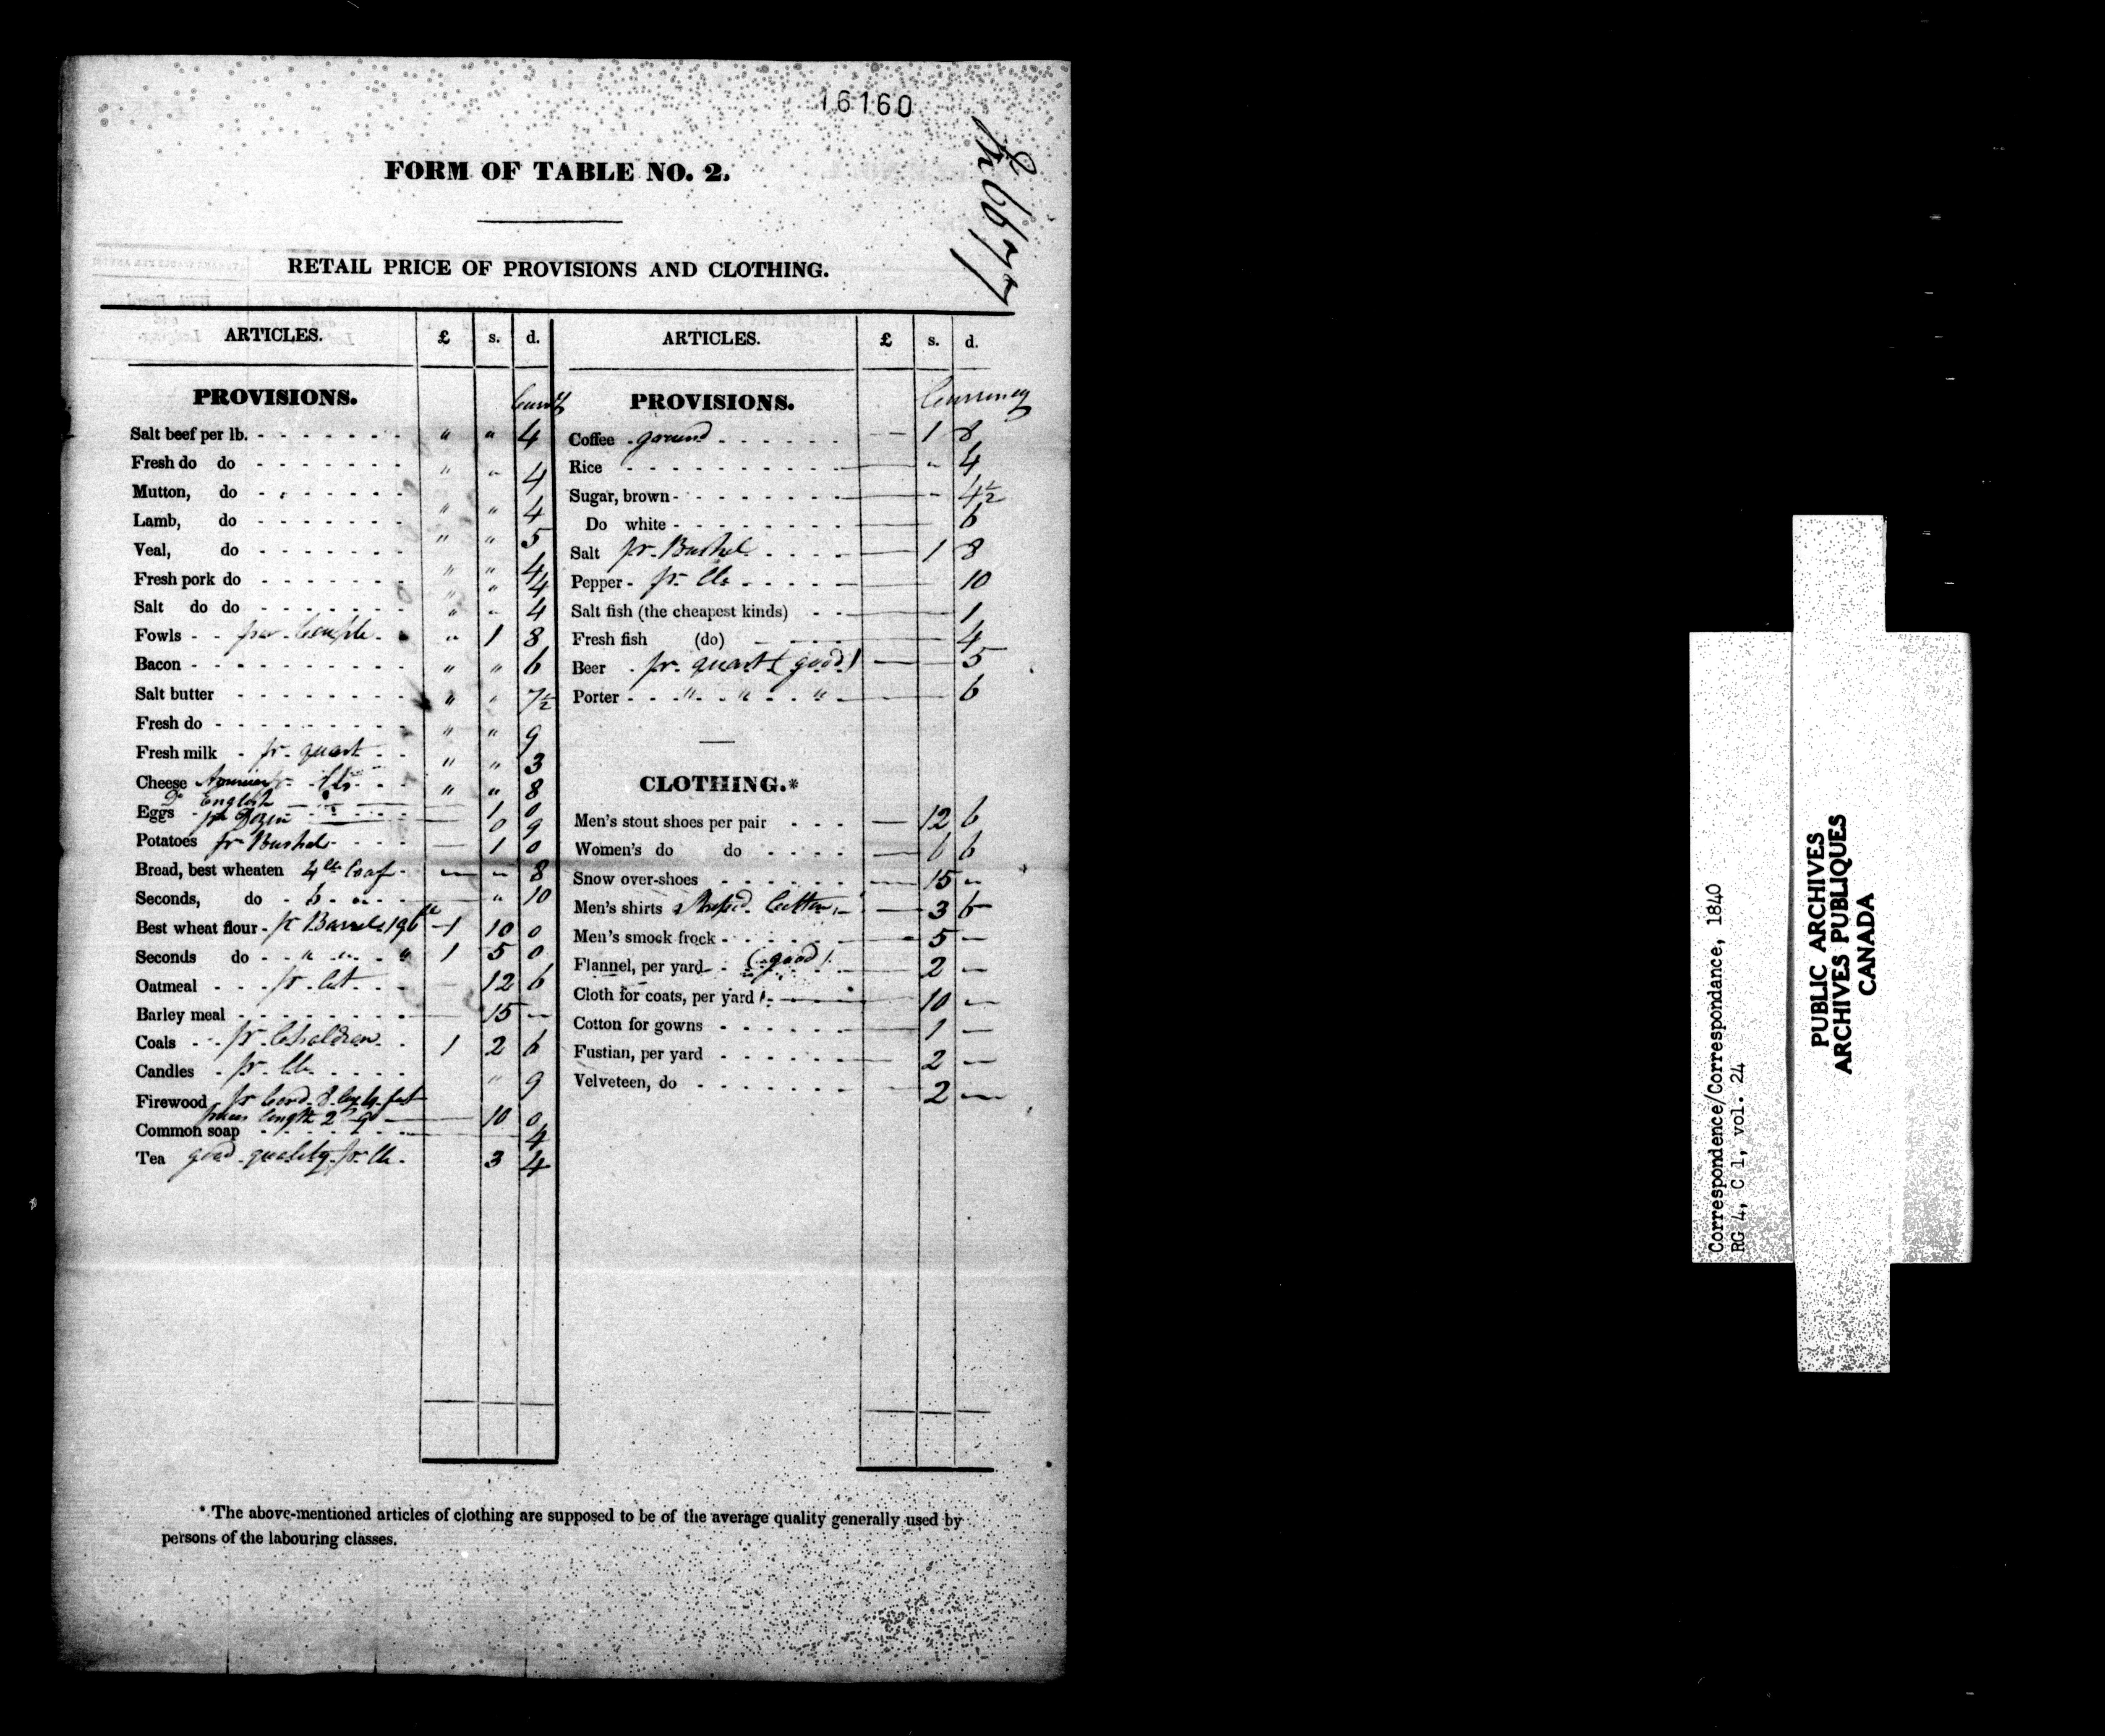 16160
FORM OF TABLE NO. 2.
RETAIL PRICE OF PROVISIONS AND CLOTHING.
ARTICLES. £ s. d.
PROVISIONS.
Curr'y
Salt beef per lb. " " 4
Fresh do do " " 4
Mutton, do " " 4
Lamb, do " " 5
Veal, do " " 4
Fresh pork do " " 4
Salt do do " " 4
Fowls per Couple " 1 8
Bacon " " 6
Salt butter " " 7½
Fresh do " " 9
Fresh milk pr quart " " 3
Cheese pr lb " " 8
Do English — 1 0
Eggs pr Dozen — 0 9
Potatoes pr Bushel — 1 0
Bread, best wheaten 4 lb loaf — " 8
Seconds, do 6 " " " 10
Best wheat flour pr Barrel 196 lb 1 10 0
Seconds do " " " 1 5 0
Oatmeal pr Cwt 12 6
Barley meal 15 —
Coals pr Chaldron 1 2 6
Candles pr lb " 9
Firewood pr Cord 8 by 4 feet
length 2 — 10 0
Common soap 4
Tea good quality pr lb 3 4
ARTICLES. £ s. d.
PROVISIONS.
Currency
Coffee ground — 1 8
Rice — " 4
Sugar, brown — " 4½
Do white — 6
Salt pr Bushel — 1 8
Pepper pr lb — 10
Salt fish (the cheapest kinds) — 1
Fresh fish (do) — 4
Beer pr quart (good) — 5
Porter " " " — 6
CLOTHING.*
Men's stout shoes per pair — 12 6
Women's do do — 6 6
Snow over-shoes — 15 "
Men's shirts Striped Cotton — 3 6
Men's smock frock — 5 —
Flannel, per yard (good) — 2 —
Cloth for coats, per yard — 10 —
Cotton for gowns — 1 —
Fustian, per yard — 2 —
Velveteen, do — 2 —
* The above-mentioned articles of clothing are supposed to be of the average quality generally used by
persons of the labouring classes.
Correspondence/Correspondance, 1840
RG 4, C 1, vol. 24
PUBLIC ARCHIVES
ARCHIVES PUBLIQUES
CANADA